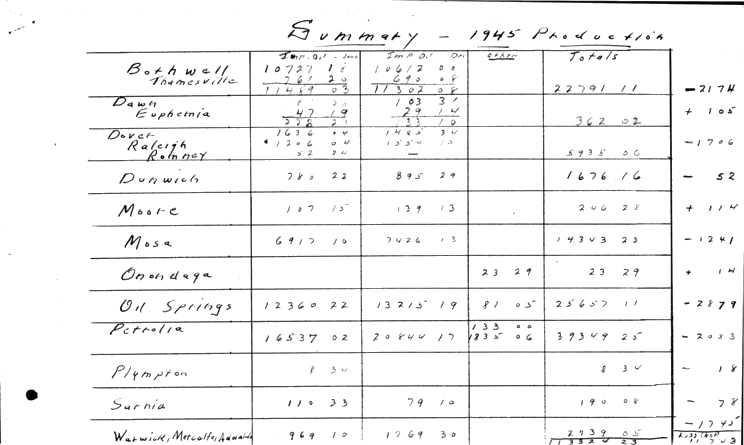 Summary - 1945 Production
Imp. Oil - June Imp Oil Dec Other Totals
Bothwell 10727 18 10612 00
Thamesville 761 20 690 08
11489 03 11302 08 22791 11 -2174
Dawn 103 31
Euphemia 47 19 29 14 + 105
228 21 133 10 362 02
Dover 1636 04 1485 34
Raleigh 1206 04 1554 10 -1706
Romney 52 24 — 5935 06
Dunwich 780 22 895 29 1676 16 - 52
Moore 107 15 139 13 246 28 + 114
Mosa 6917 10 7426 13 14343 23 -1241
Onondaga 23 29 23 29 + 14
Oil Springs 12360 22 13215 19 81 05 25657 11 -2879
Petrolia 133 00
16537 02 20844 17 1835 06 39349 25 - 2083
Plympton 8 34 8 34 - 18
Sarnia 110 33 79 10 190 08 - 78
Warwick, Metcalfe, Adelaide 969 10 1769 30 2739 05 -1745
113324 23